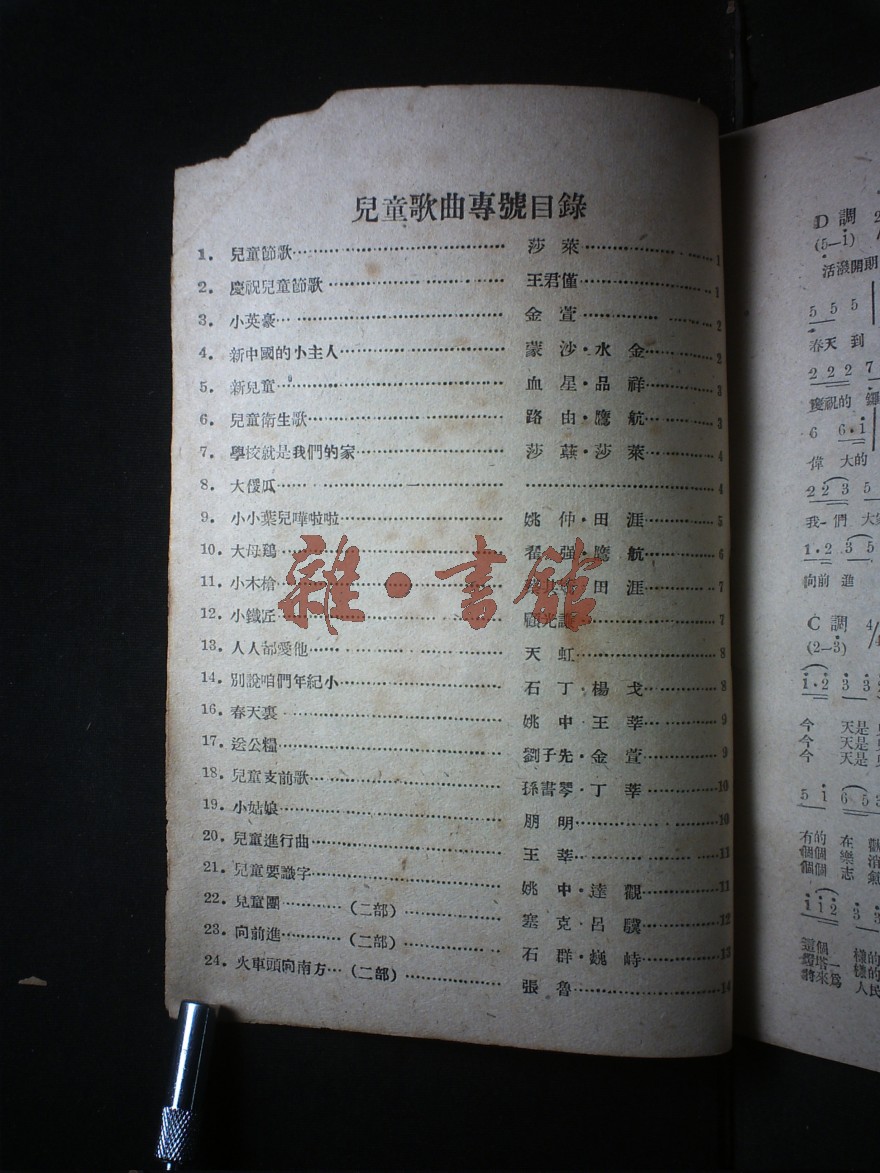 兒童歌曲專號目錄
1. 兒童節歌………莎萊………1
2. 慶祝兒童節歌………王君僅………1
3. 小英豪………金萱………2
4. 新中國的小主人………蒙沙·水金………2
5. 新兒童………血星·品祥………3
6. 兒童衛生歌………路由·鷹航………3
7. 學校就是我們的家………莎蕻·莎萊………4
8. 大傻瓜………4
9. 小小葉兒嘩啦啦………姚仲·田涯………5
10. 大母鷄………強·鷹航………6
11. 小木槍………田涯………7
12. 小鐵匠………顧光………7
13. 人人都愛他………天虹………8
14. 別說咱們年紀小………石丁·楊戈………8
16. 春天裏………姚中·王莘………9
17. 送公糧………劉子先·金萱………9
18. 兒童支前歌………孫書琴·丁莘………10
19. 小姑娘………朋明………10
20. 兒童進行曲………王莘………11
21. 兒童要識字………姚中·達觀………11
22. 兒童團………(二部)………塞克·呂驥………12
23. 向前進………(二部)………石群·巍峙………13
24. 火車頭向南方…(二部)………張魯………14
雜·書館
D調 2
(5—i)
活潑開朗
5 5 5
春天到
2 2 2 7
慶祝的
6 6·i
偉大的
2 2 3 5
我-們大
1·2 3 5
向前進
C調 4/4
(2—3)
1·2 3 3
今天是
今天是
今天是
5 i 6 5 3
有的在觀
個個樂
個個志
i i 2 3
這個樣的
樣的
將來為人民